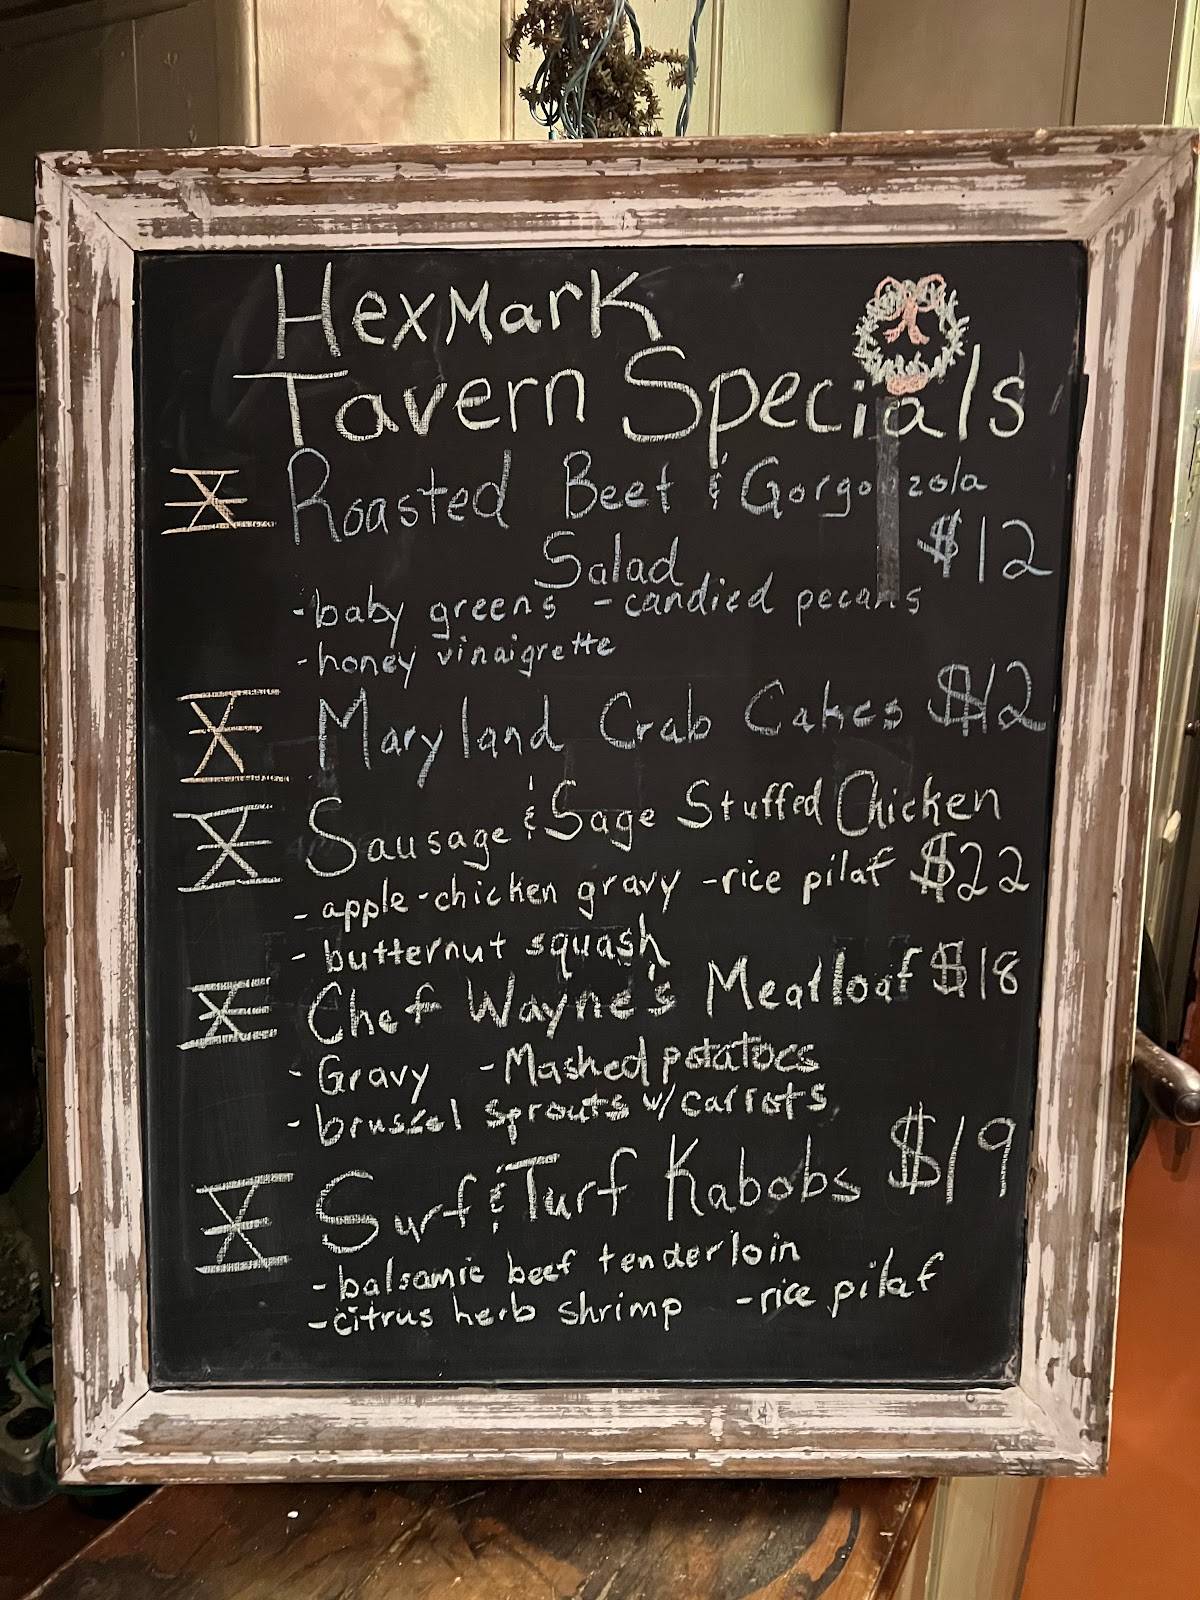 HexMark
Tavern Specials
Roasted Beet & Gorgonzola
Salad $12
-baby greens -candied pecans
-honey vinaigrette
Maryland Crab Cakes $12
Sausage & Sage Stuffed Chicken
-apple-chicken gravy -rice pilaf $22
-butternut squash
Chef Wayne's Meatloaf $18
-Gravy -Mashed potatoes
-brussel sprouts w/carrots
Surf & Turf Kabobs $19
-balsamic beef tenderloin
-citrus herb shrimp -rice pilaf